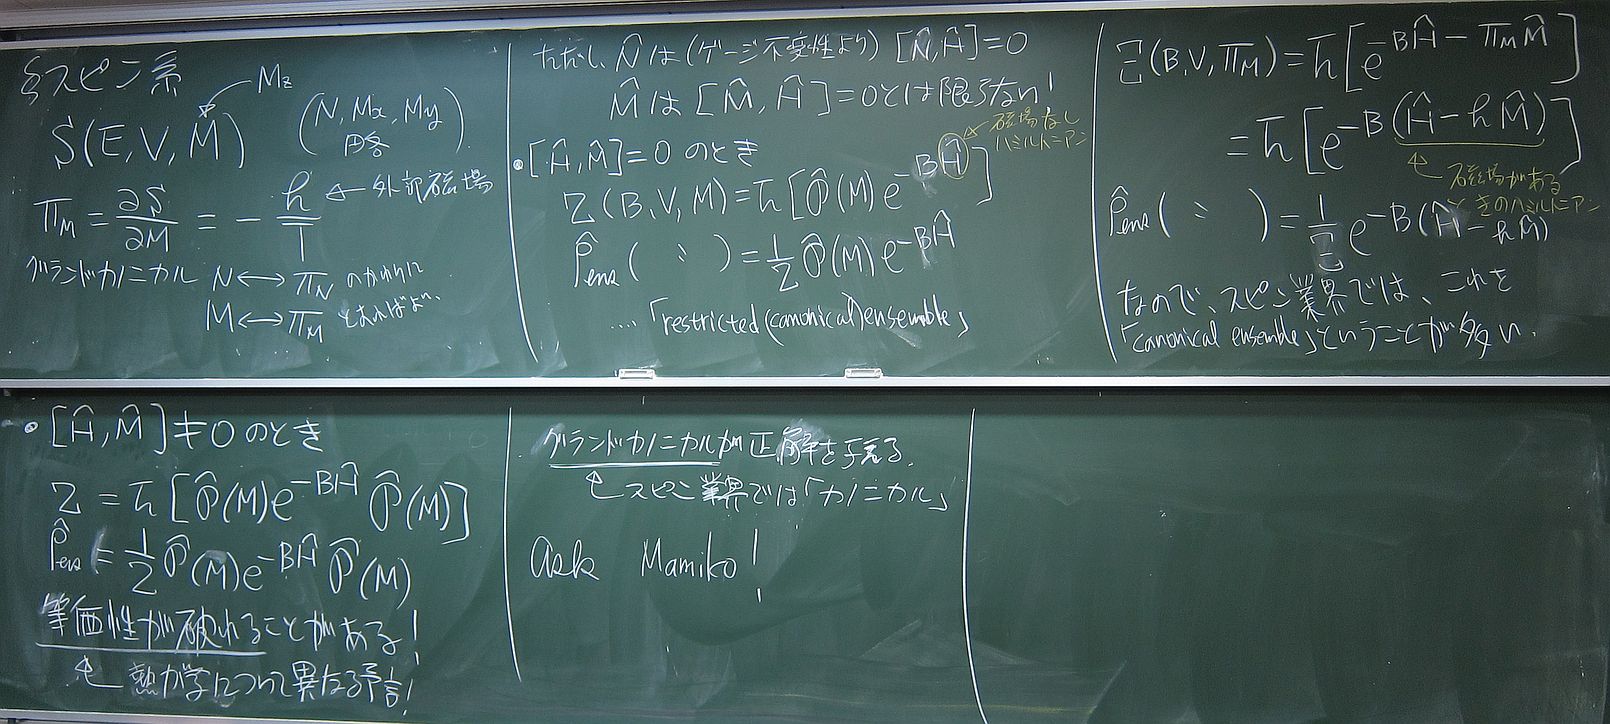 §スピン系
Mz
S(E,V,M)
(N, Mx, My 略)
π_M = ∂S/∂M = - h/T ← 外部磁場
グランドカノニカル N ↔ π_N のかわりに
M ↔ π_M とすればよい.
ただし、N̂は(ゲージ不変性より) [N̂,Ĥ]=0
M̂は [M̂,Ĥ]=0とは限らない!
・[Ĥ,M̂]=0 のとき
磁場なし
ハミルトニアン
Z(B,V,M)=Tr[P̂(M)e^{-BĤ}]
ρ̂ens( 〃 )=1/Z P̂(M)e^{-BĤ}
....「restricted(canonical)ensemble」
Ξ(B,V,π_M)=Tr[e^{-BĤ-π_M M̂}]
=Tr[e^{-B(Ĥ-hM̂)}]
磁場がある
ときのハミルトニアン
ρ̂ens( 〃 )=1/Ξ e^{-B(Ĥ-hM̂)}
なので、スピン業界では、これを
「canonical ensemble」ということが多い.
・[Ĥ,M̂]≠0 のとき
Z=Tr[P̂(M)e^{-BĤ}P̂(M)]
ρ̂ens=1/Z P̂(M)e^{-BĤ}P̂(M)
等価性が破れることがある!
熱力学について異なる予言!
グランドカノニカルが正解を与える.
スピン業界では「カノニカル」
ask Mamiko!